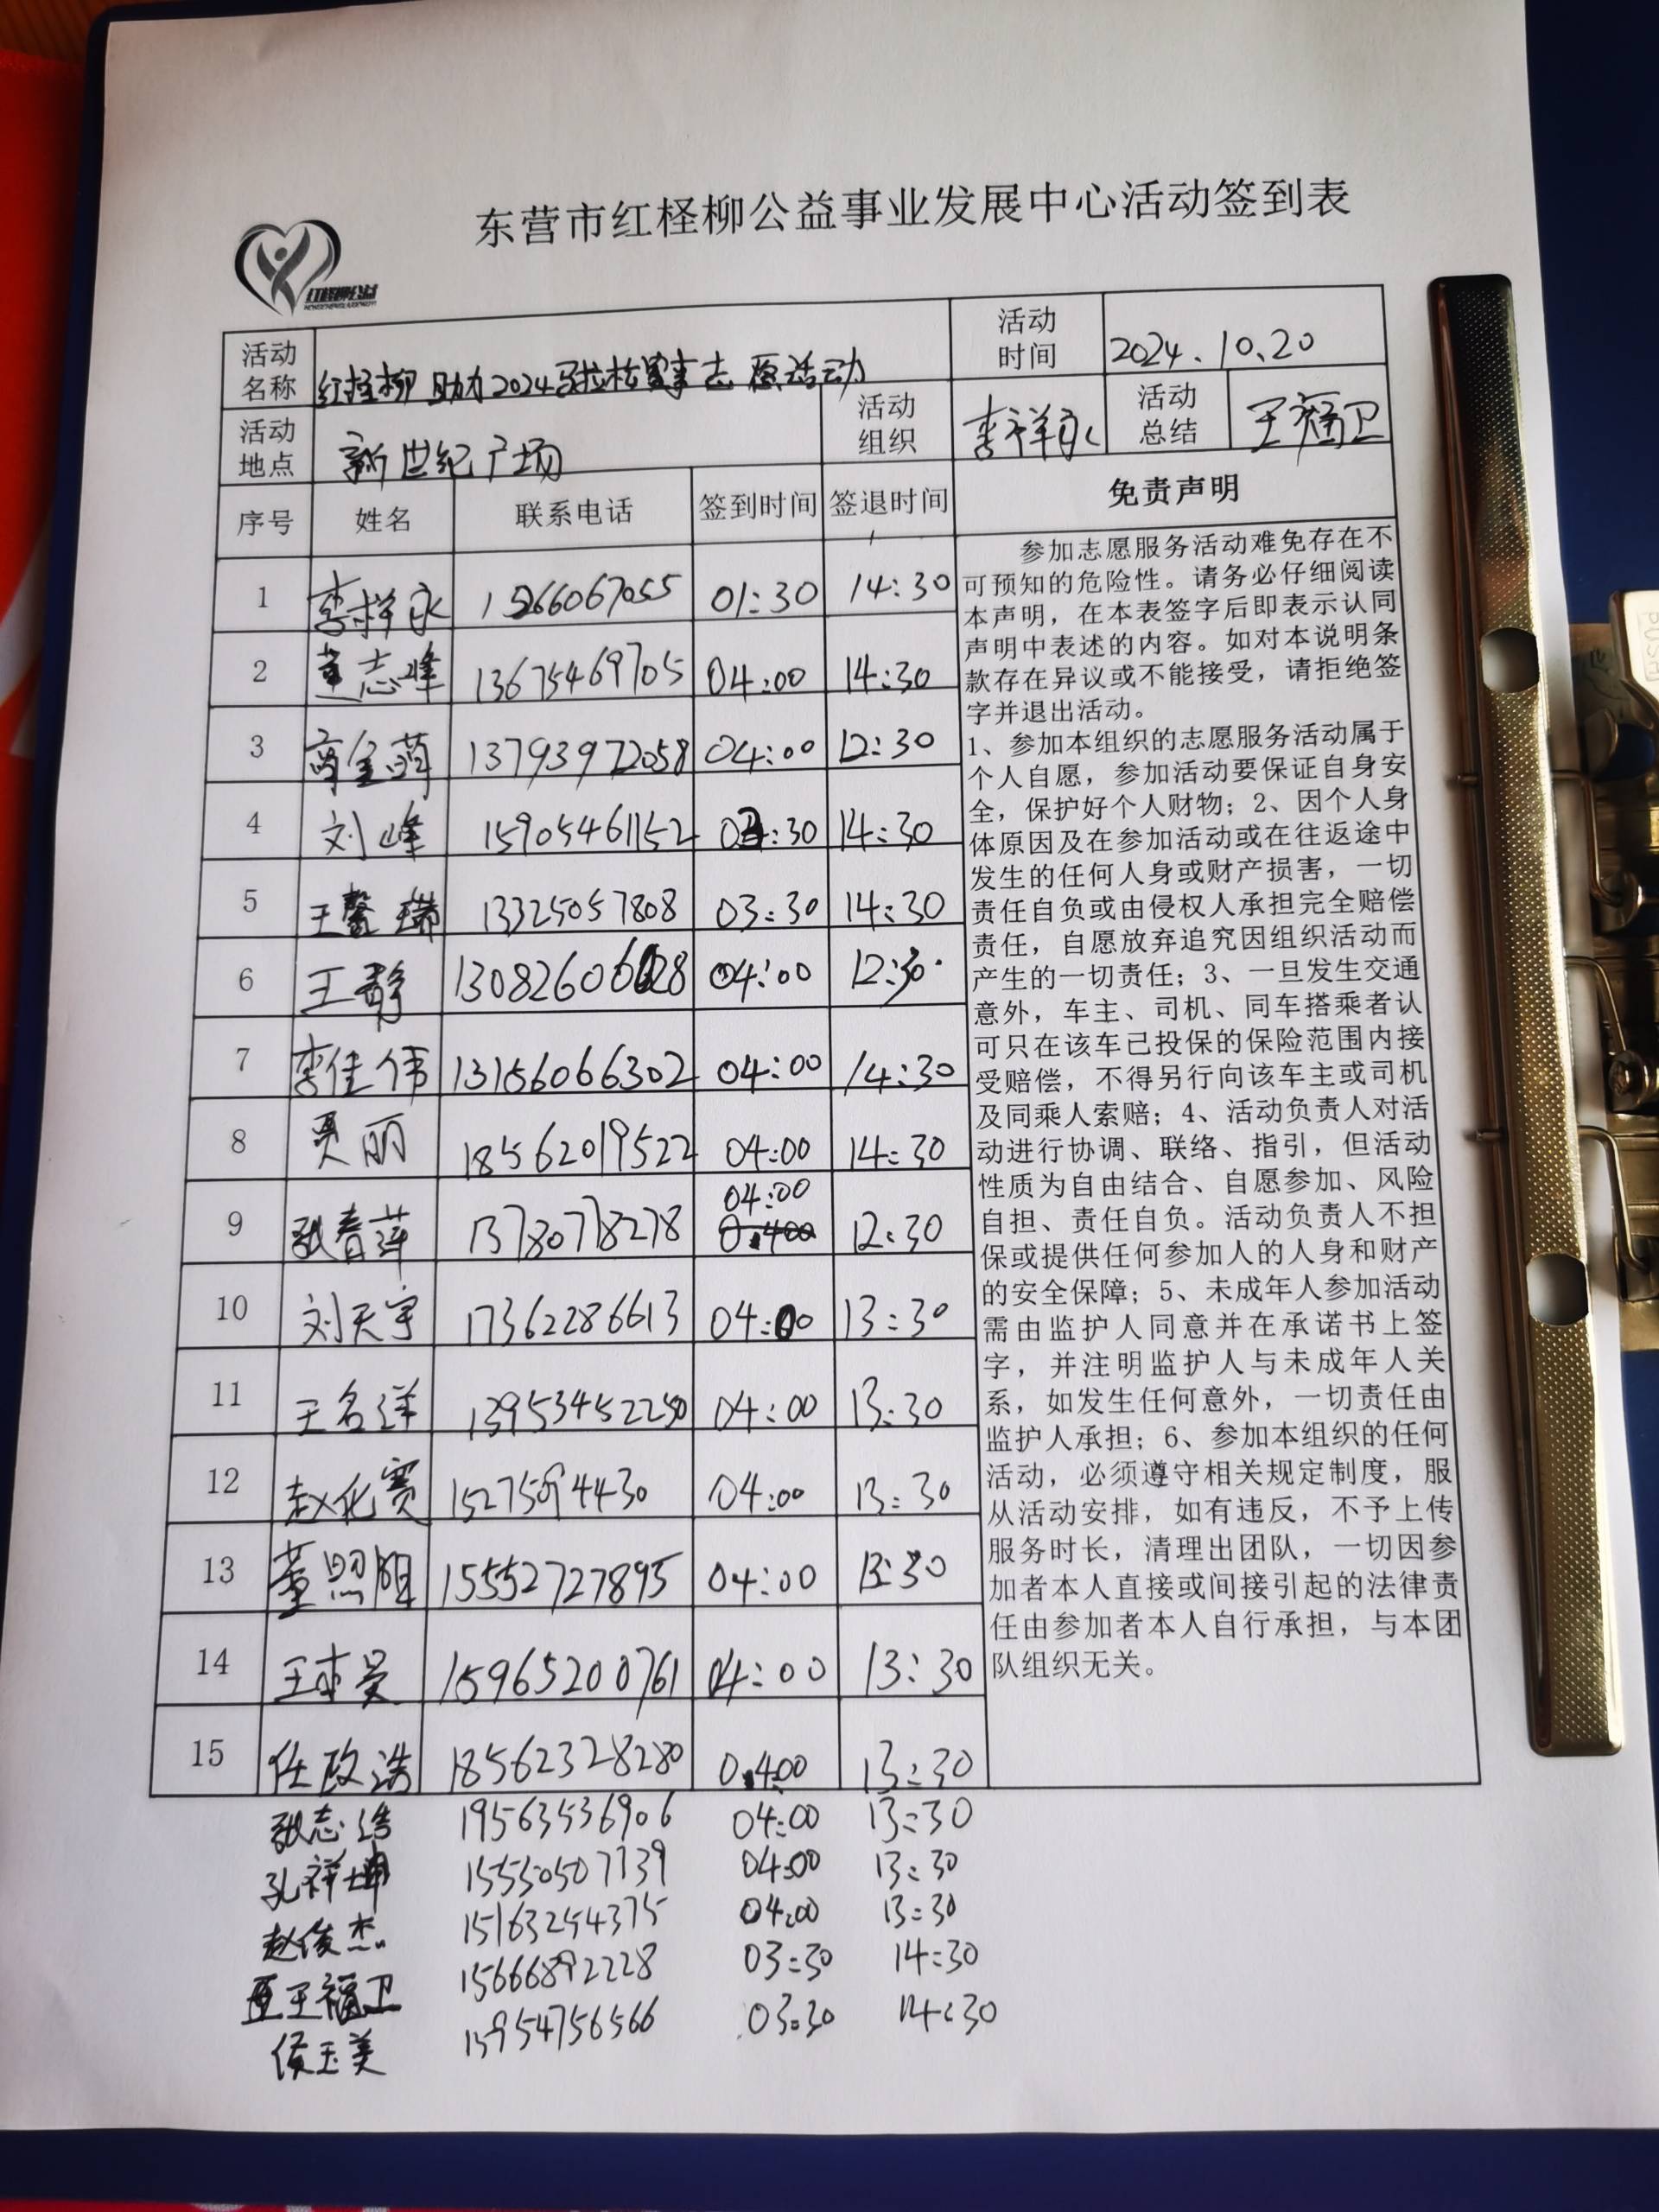 东营市红柽柳公益事业发展中心活动签到表
红柽柳公益
活动名称 红柽柳助力2024马拉松赛事志愿活动 活动时间 2024.10.20
活动地点 新世纪广场 活动组织 李祥永 活动总结 王福卫
序号 姓名 联系电话 签到时间 签退时间 免责声明
1 李祥永 15266067055 01:30 14:30
2 董志峰 13675469705 04:00 14:30
3 商金萌 13793972058 04:00 12:30
4 刘峰 15905461152 14:30
5 王馨瑞 13325057808 03:30 14:30
6 王静 04:00 12:30
7 李佳伟 13156066302 04:00 14:30
8 贾丽 18562019522 04:00 14:30
9 张春萍 13780778278 04:00 12:30
10 刘天宇 17362286613 04:00 13:30
11 王名洋 13953452250 04:00 13:30
12 赵化赛 15275094430 04:00 13:30
13 董照阳 15552727895 04:00 13:30
14 15965200761 04:00 13:30
15 任政浩 18562328280 04:00 13:30
张志浩 19563536906 04:00 13:30
孔祥坤 15550507739 04:00 13:30
赵俊杰 15163254375 04:00 13:30
王福卫 15666892228 03:30 14:30
侯玉美 15954756566 03:30 14:30
参加志愿服务活动难免存在不
可预知的危险性。请务必仔细阅读
本声明，在本表签字后即表示认同
声明中表述的内容。如对本说明条
款存在异议或不能接受，请拒绝签
字并退出活动。
1、参加本组织的志愿服务活动属于
个人自愿，参加活动要保证自身安
全，保护好个人财物；2、因个人身
体原因及在参加活动或在往返途中
发生的任何人身或财产损害，一切
责任自负或由侵权人承担完全赔偿
责任，自愿放弃追究因组织活动而
产生的一切责任；3、一旦发生交通
意外，车主、司机、同车搭乘者认
可只在该车已投保的保险范围内接
受赔偿，不得另行向该车主或司机
及同乘人索赔；4、活动负责人对活
动进行协调、联络、指引，但活动
性质为自由结合、自愿参加、风险
自担、责任自负。活动负责人不担
保或提供任何参加人的人身和财产
的安全保障；5、未成年人参加活动
需由监护人同意并在承诺书上签
字，并注明监护人与未成年人关
系，如发生任何意外，一切责任由
监护人承担；6、参加本组织的任何
活动，必须遵守相关规定制度，服
从活动安排，如有违反，不予上传
服务时长，清理出团队，一切因参
加者本人直接或间接引起的法律责
任由参加者本人自行承担，与本团
队组织无关。